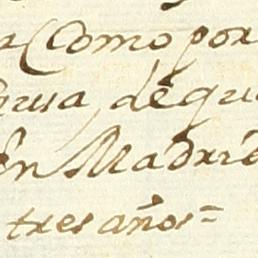 Como por
de qu
En Madrid
tres años=